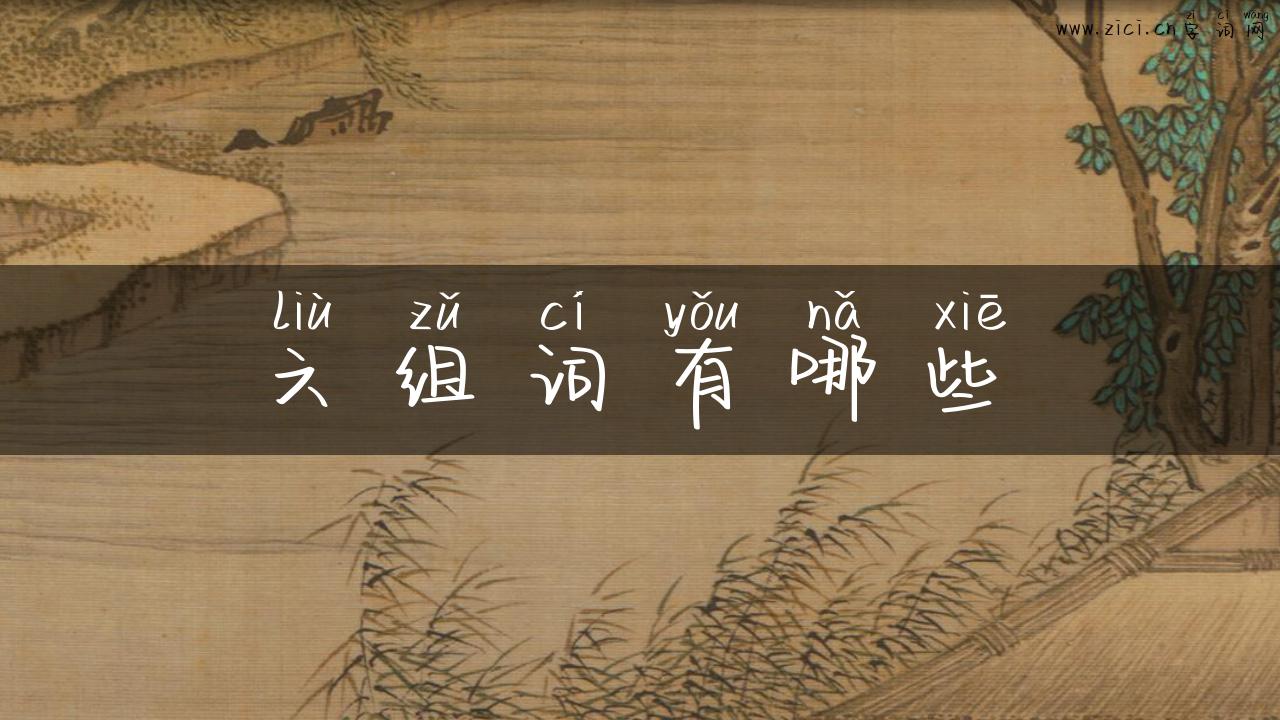 zì cí wǎng
www.zici.cn字词网
liù zǔ cí yǒu nǎ xiē
六组词有哪些